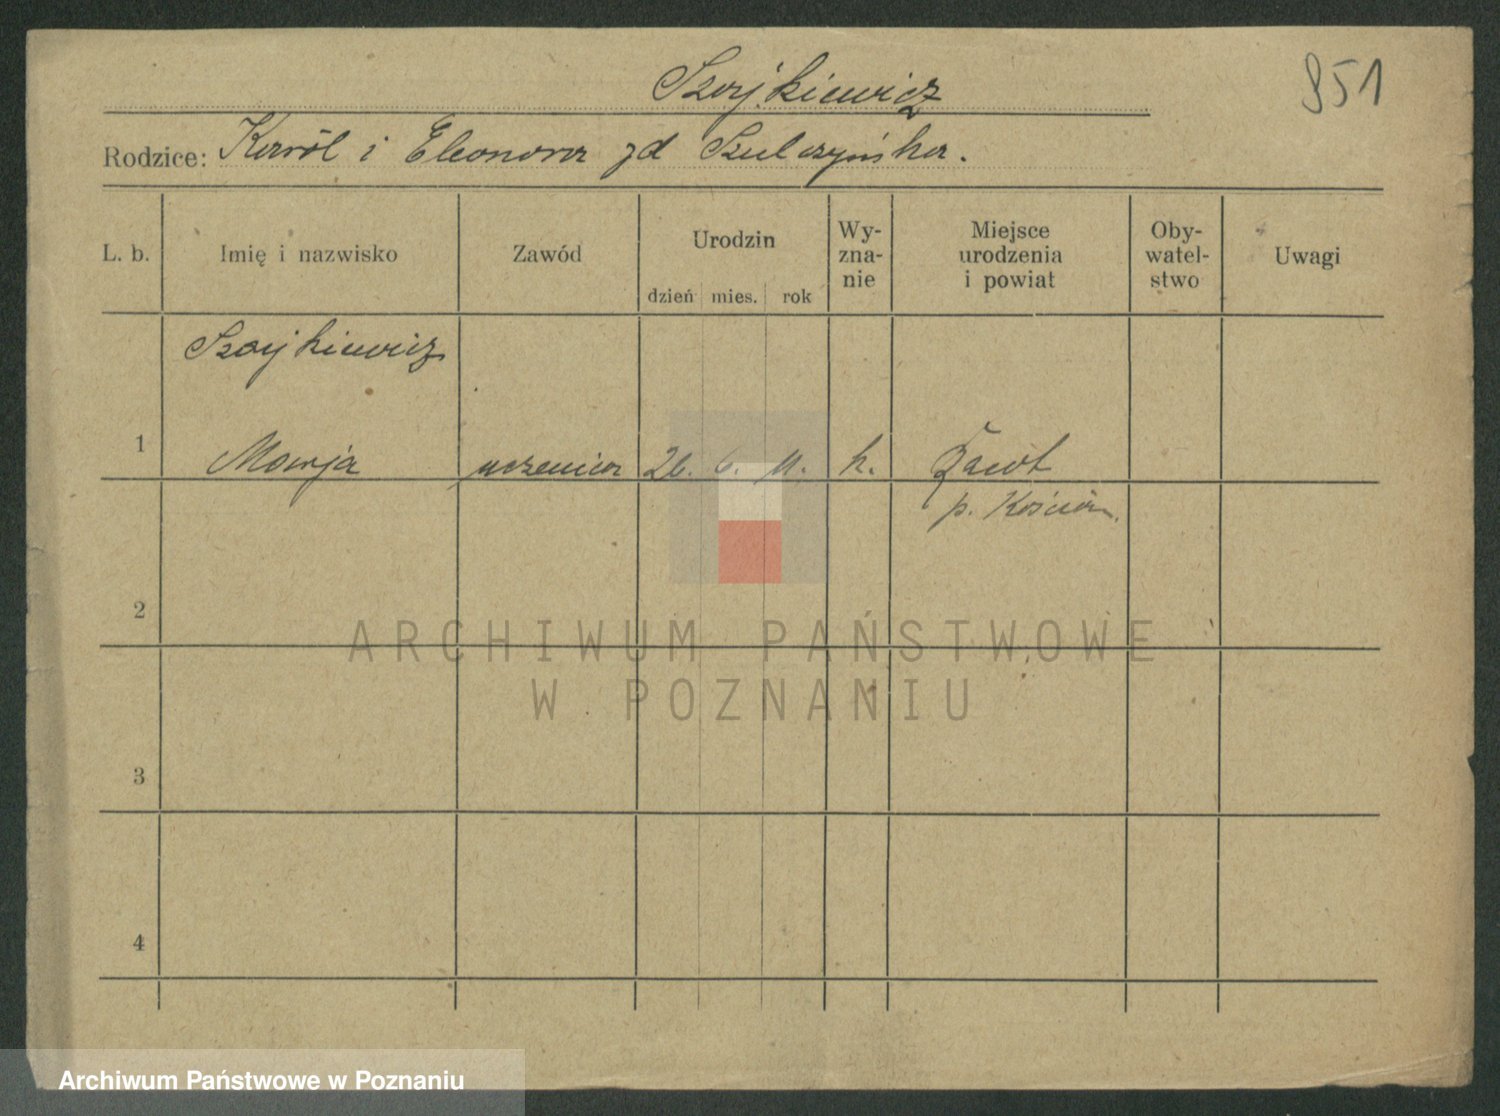 Szojkiewicz
951
Rodzice: Karol i Eleonora zd Szulczyńska.
L. b.
Imię i nazwisko
Zawód
Urodzin
dzień mies. rok
Wy-
zna-
nie
Miejsce
urodzenia
i powiat
Oby-
watel-
stwo
Uwagi
Szojkiewicz
1 Marja uczenica 26. 6. 11. k.
p. Kościan.
2
ARCHIWUM PAŃSTWOWE
W POZNANIU
3
4
Archiwum Państwowe w Poznaniu